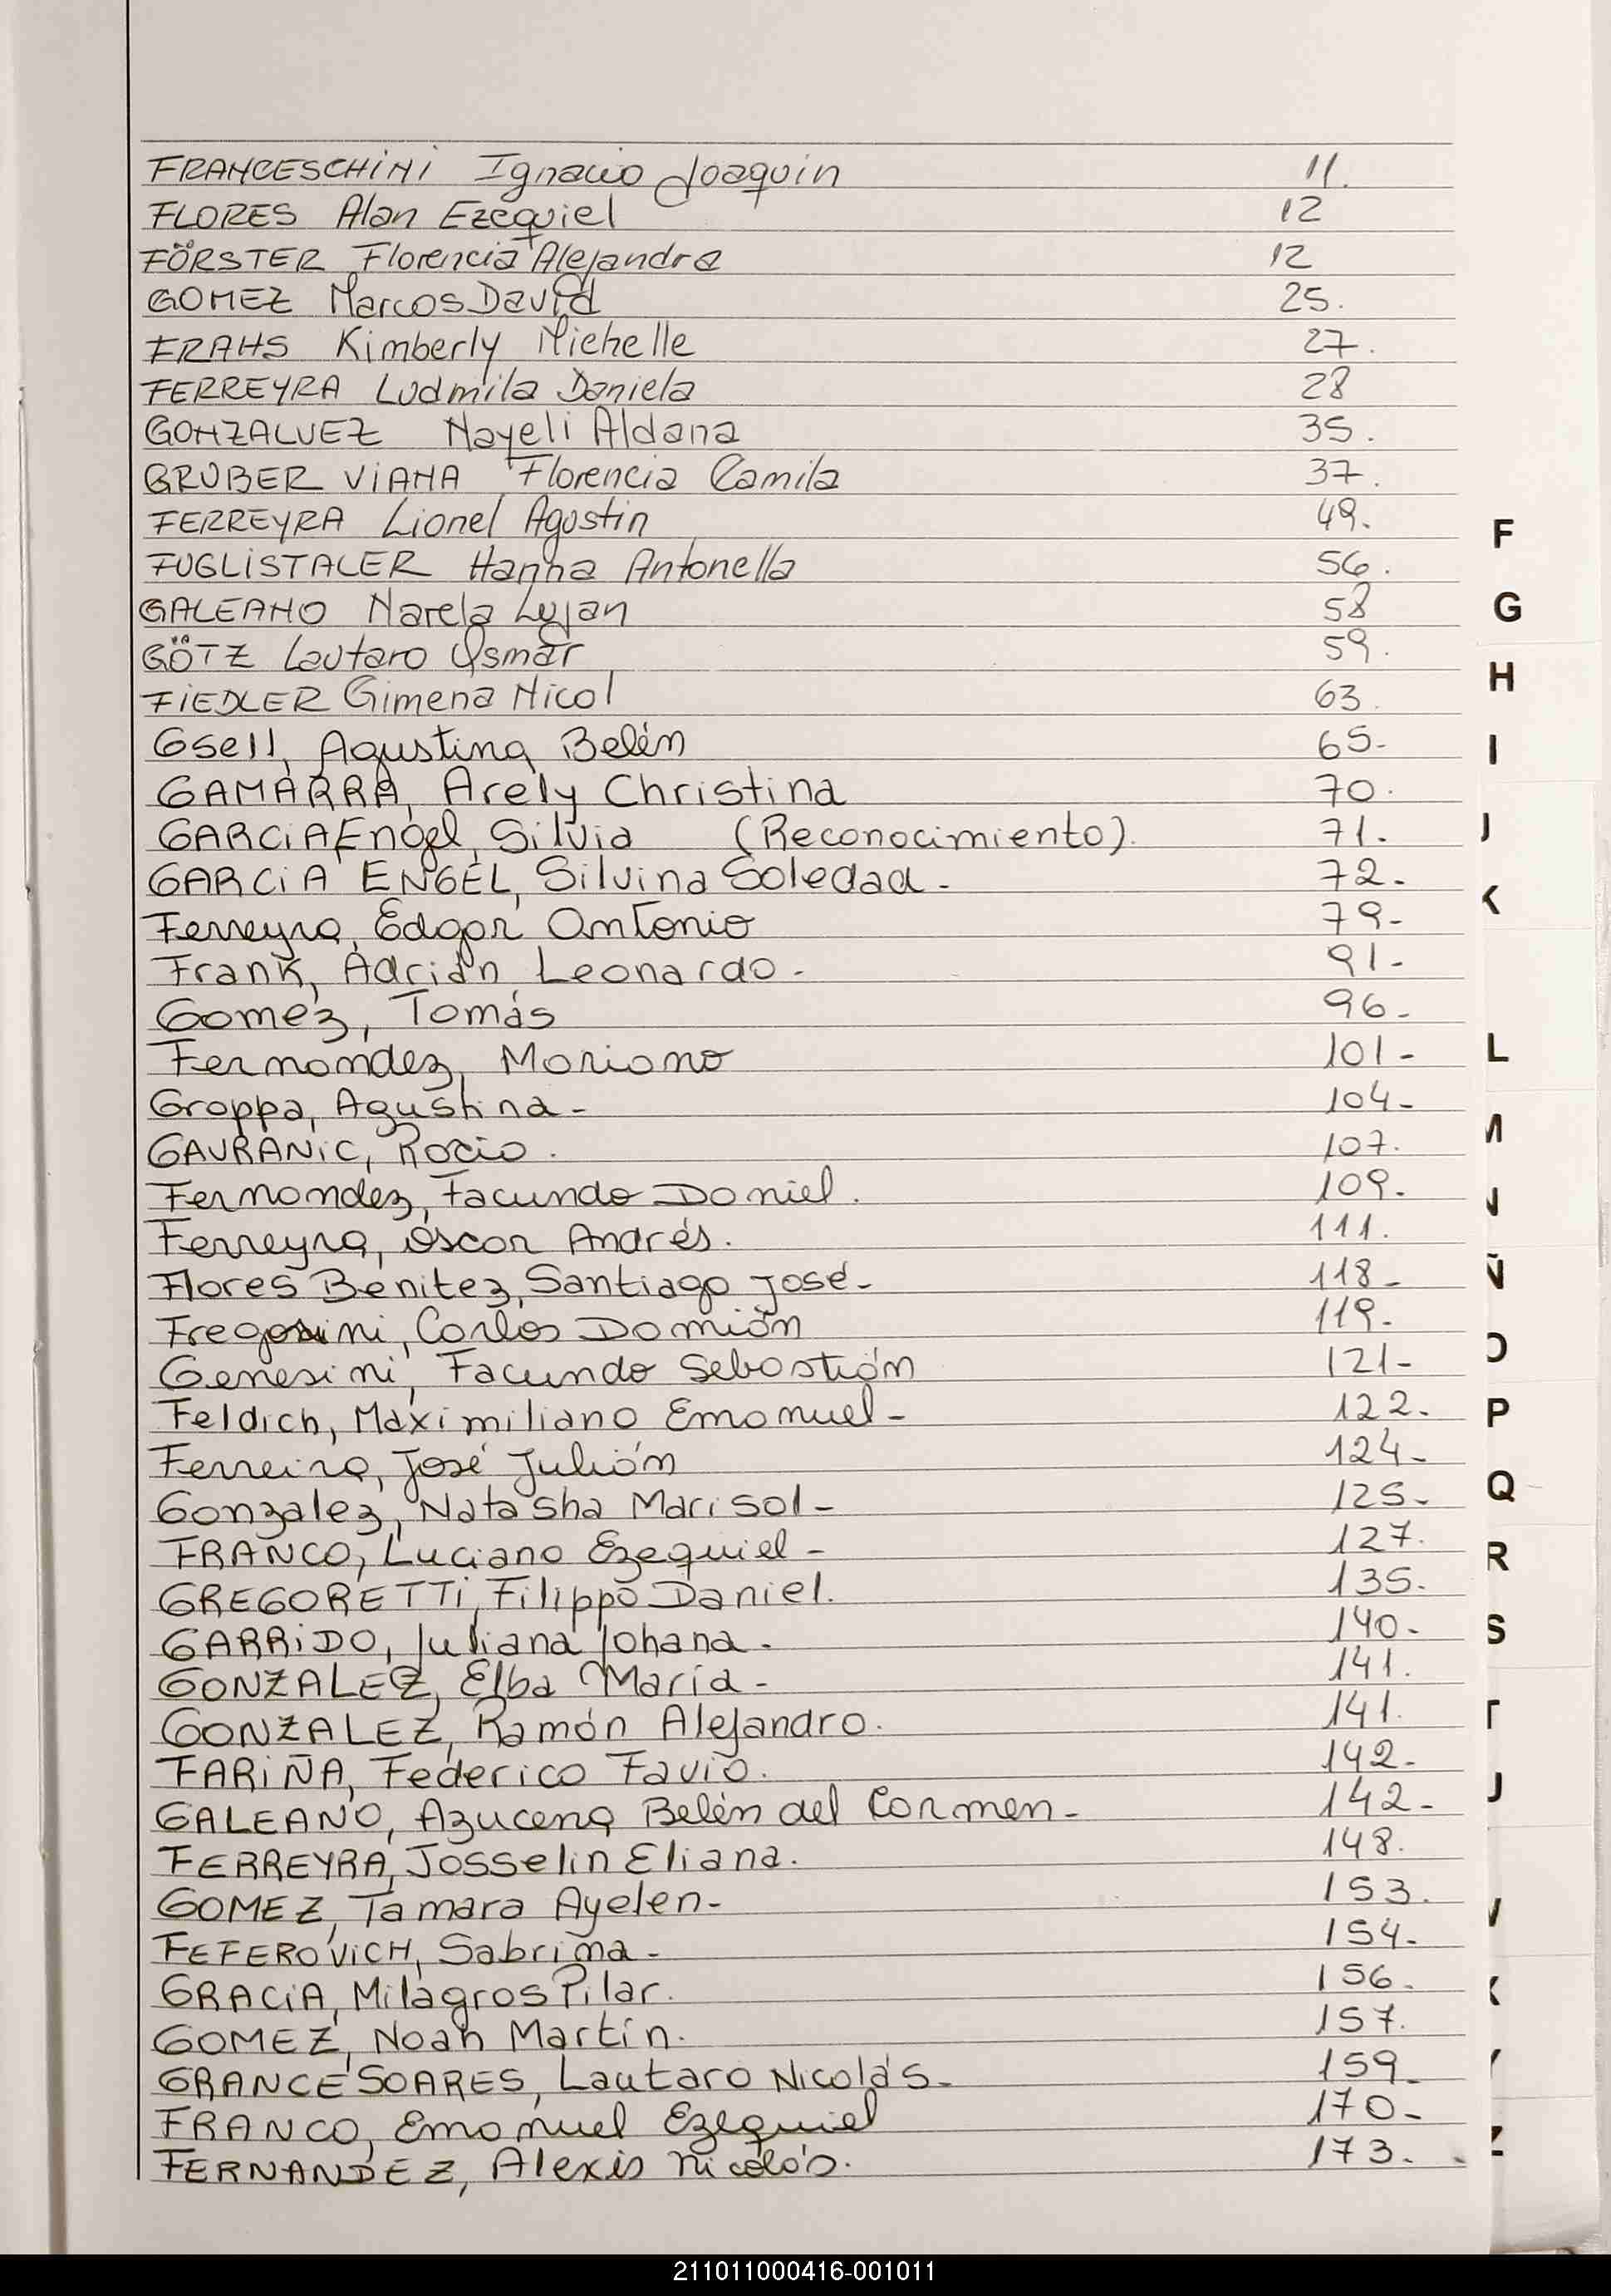 FRANCESCHINI Ignacio Joaquin 11.
FLORES Alan Ezequiel 12
FÖRSTER Florencia Alejandra 12
GOMEZ Marcos David 25.
FRAHS Kimberly Michelle 27.
FERREYRA Ludmila Daniela 28
GONZALVEZ Nayeli Aldana 35.
GRUBER VIANA Florencia Camila 37.
FERREYRA Lionel Agustin 49.
FUGLISTALER Hanna Antonella 56.
GALEANO Narela Lujan 58
GÖTZ Lautaro Osmar 59.
FIEDLER Gimena Nicol 63.
Gsell, Agustina Belén 65-
GAMARRA, Arely Christina 70.
GARCIA Engel, Silvia (Reconocimiento). 71.
GARCIA ENGEL, Silvina Soledad - 72-
Ferreyra, Edgar Antonio 79-
Frank, Adrián Leonardo - 91-
Gomez, Tomás 96-
Fernandez, Mariano 101-
Groppa, Agustina - 104-
GAVRANIC, Rocio. 107.
Fernandez, Facundo Daniel. 109.
Ferreyra, Oscar Andrés. 111.
Flores Benitez, Santiago José- 118-
Fregosini, Carlos Damián 119.
Genesini, Facundo Sebastián 121-
Feldich, Maximiliano Emanuel - 122.
Ferreira, José Julián 124-
Gonzalez, Natasha Marisol - 125-
FRANCO, Luciano Ezequiel - 127.
GREGORETTI, Filippo Daniel. 135.
GARRIDO, Juliana Johana. 140.
GONZALEZ, Elba María - 141.
GONZALEZ, Ramón Alejandro. 141.
FARIÑA, Federico Favio. 142-
GALEANO, Azucena Belén del Carmen - 142-
FERREYRA, Josselin Eliana. 148.
GOMEZ, Tamara Ayelen- 153.
FEFEROVICH, Sabrina - 154-
GRACIA, Milagros Pilar. 156.
GOMEZ, Noah Martín. 157.
GRANCE SOARES, Lautaro Nicolás- 159-
FRANCO, Emanuel Ezequiel 170-
FERNANDEZ, Alexis Nicolás. 173.
F
G
H
I
J
K
L
M
N
Ñ
O
P
Q
R
S
T
U
V
X
Y
Z
211011000416-001011